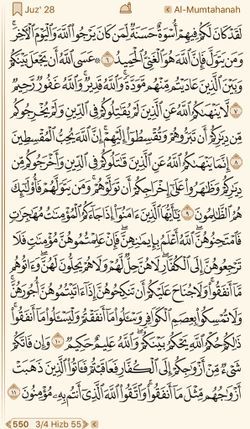 Juz' 28 Al-Mumtahanah
لَقَدْ كَانَ لَكُمْ فِيهِمْ أُسْوَةٌ حَسَنَةٌ لِّمَن كَانَ يَرْجُوا۟ ٱللَّهَ وَٱلْيَوْمَ ٱلْـَٔاخِرَ ۚ
وَمَن يَتَوَلَّ فَإِنَّ ٱللَّهَ هُوَ ٱلْغَنِىُّ ٱلْحَمِيدُ ٦ ۞ عَسَى ٱللَّهُ أَن يَجْعَلَ بَيْنَكُمْ
وَبَيْنَ ٱلَّذِينَ عَادَيْتُم مِّنْهُم مَّوَدَّةً ۚ وَٱللَّهُ قَدِيرٌ ۚ وَٱللَّهُ غَفُورٌ رَّحِيمٌ
٧ لَّا يَنْهَىٰكُمُ ٱللَّهُ عَنِ ٱلَّذِينَ لَمْ يُقَـٰتِلُوكُمْ فِى ٱلدِّينِ وَلَمْ يُخْرِجُوكُم
مِّن دِيَـٰرِكُمْ أَن تَبَرُّوهُمْ وَتُقْسِطُوٓا۟ إِلَيْهِمْ ۚ إِنَّ ٱللَّهَ يُحِبُّ ٱلْمُقْسِطِينَ
٨ إِنَّمَا يَنْهَىٰكُمُ ٱللَّهُ عَنِ ٱلَّذِينَ قَـٰتَلُوكُمْ فِى ٱلدِّينِ وَأَخْرَجُوكُم مِّن
دِيَـٰرِكُمْ وَظَـٰهَرُوا۟ عَلَىٰٓ إِخْرَاجِكُمْ أَن تَوَلَّوْهُمْ ۚ وَمَن يَتَوَلَّهُمْ فَأُو۟لَـٰٓئِكَ
هُمُ ٱلظَّـٰلِمُونَ ٩ يَـٰٓأَيُّهَا ٱلَّذِينَ ءَامَنُوٓا۟ إِذَا جَآءَكُمُ ٱلْمُؤْمِنَـٰتُ مُهَـٰجِرَٰتٍ
فَٱمْتَحِنُوهُنَّ ۖ ٱللَّهُ أَعْلَمُ بِإِيمَـٰنِهِنَّ ۖ فَإِنْ عَلِمْتُمُوهُنَّ مُؤْمِنَـٰتٍ فَلَا
تَرْجِعُوهُنَّ إِلَى ٱلْكُفَّارِ ۖ لَا هُنَّ حِلٌّ لَّهُمْ وَلَا هُمْ يَحِلُّونَ لَهُنَّ ۖ وَءَاتُوهُم
مَّآ أَنفَقُوا۟ ۚ وَلَا جُنَاحَ عَلَيْكُمْ أَن تَنكِحُوهُنَّ إِذَآ ءَاتَيْتُمُوهُنَّ أُجُورَهُنَّ ۚ
وَلَا تُمْسِكُوا۟ بِعِصَمِ ٱلْكَوَافِرِ وَسْـَٔلُوا۟ مَآ أَنفَقْتُمْ وَلْيَسْـَٔلُوا۟ مَآ أَنفَقُوا۟ ۚ
ذَٰلِكُمْ حُكْمُ ٱللَّهِ ۖ يَحْكُمُ بَيْنَكُمْ ۚ وَٱللَّهُ عَلِيمٌ حَكِيمٌ ١٠ وَإِن فَاتَكُمْ
شَىْءٌ مِّنْ أَزْوَٰجِكُمْ إِلَى ٱلْكُفَّارِ فَعَاقَبْتُمْ فَـَٔاتُوا۟ ٱلَّذِينَ ذَهَبَتْ
أَزْوَٰجُهُم مِّثْلَ مَآ أَنفَقُوا۟ ۚ وَٱتَّقُوا۟ ٱللَّهَ ٱلَّذِىٓ أَنتُم بِهِۦ مُؤْمِنُونَ ١١
550 3/4 Hizb 55